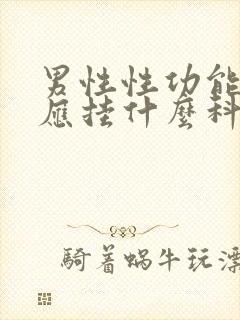 男性性功能
應挂什麼科
騎着蝸牛玩漂